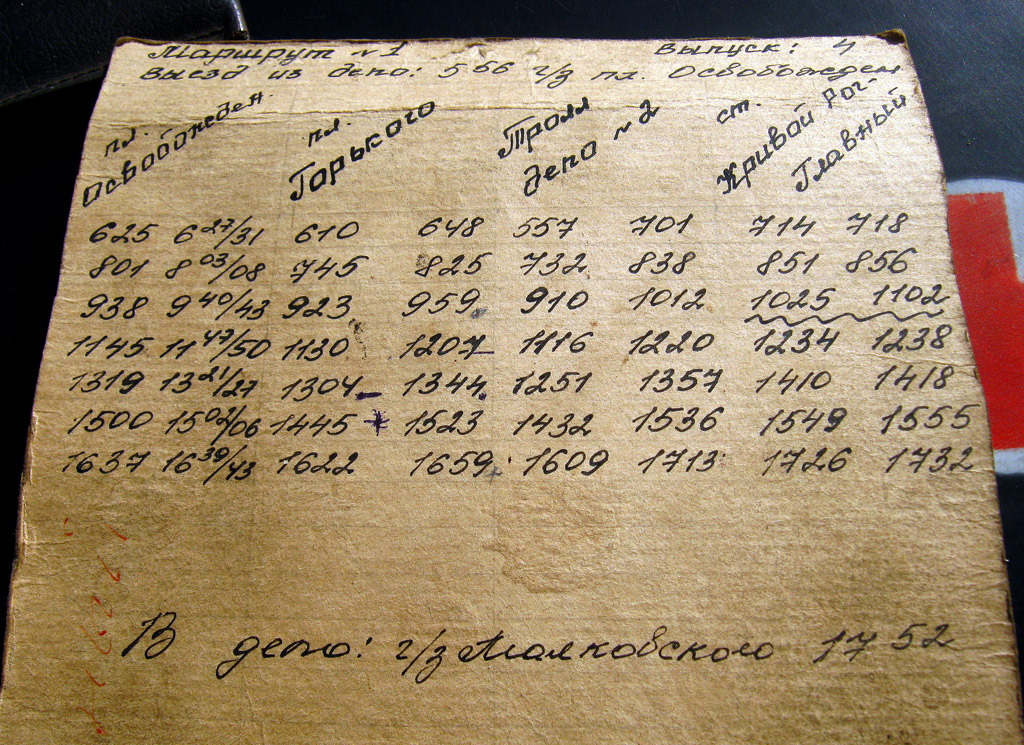 Маршрут №1 Выпуск: 4
Выезд из депо: 556 ч/з пл. Освобожден
пл. Освобожден. пл. Горького Тролл депо №2 ст. Кривой Рог-Главный
625 6 27/31 610 648 557 701 714 718
801 8 03/08 745 825 732 838 851 856
938 9 40/43 923 959 910 1012 1025 1102
1145 11 47/50 1130 1207 1116 1220 1234 1238
1319 13 21/27 1304 1344 1251 1357 1410 1418
1500 15 02/06 1445 * 1523 1432 1536 1549 1555
1637 16 39/43 1622 1659 1609 1713 1726 1732
В депо: ч/з Маяковского 17 52